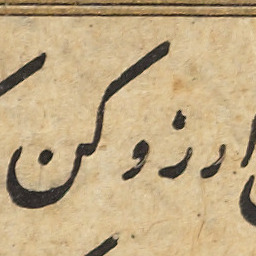 ارزو کن